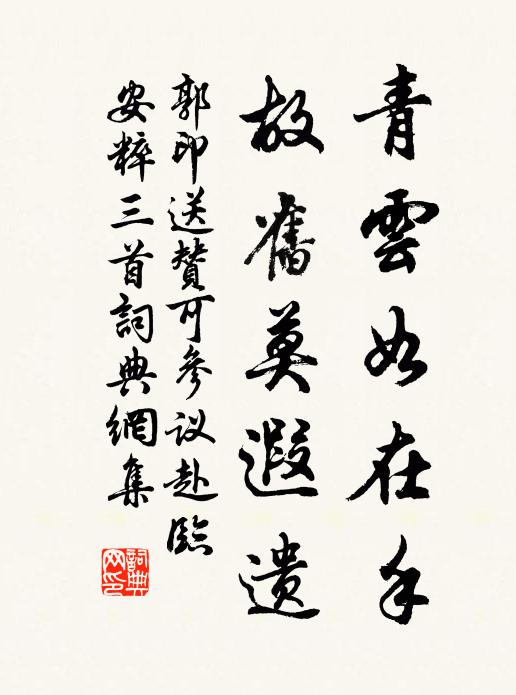 青雲如在手
故舊莫遐遗
郭印送贊可參议赴臨
安粹三首詞典網集
詞典网印